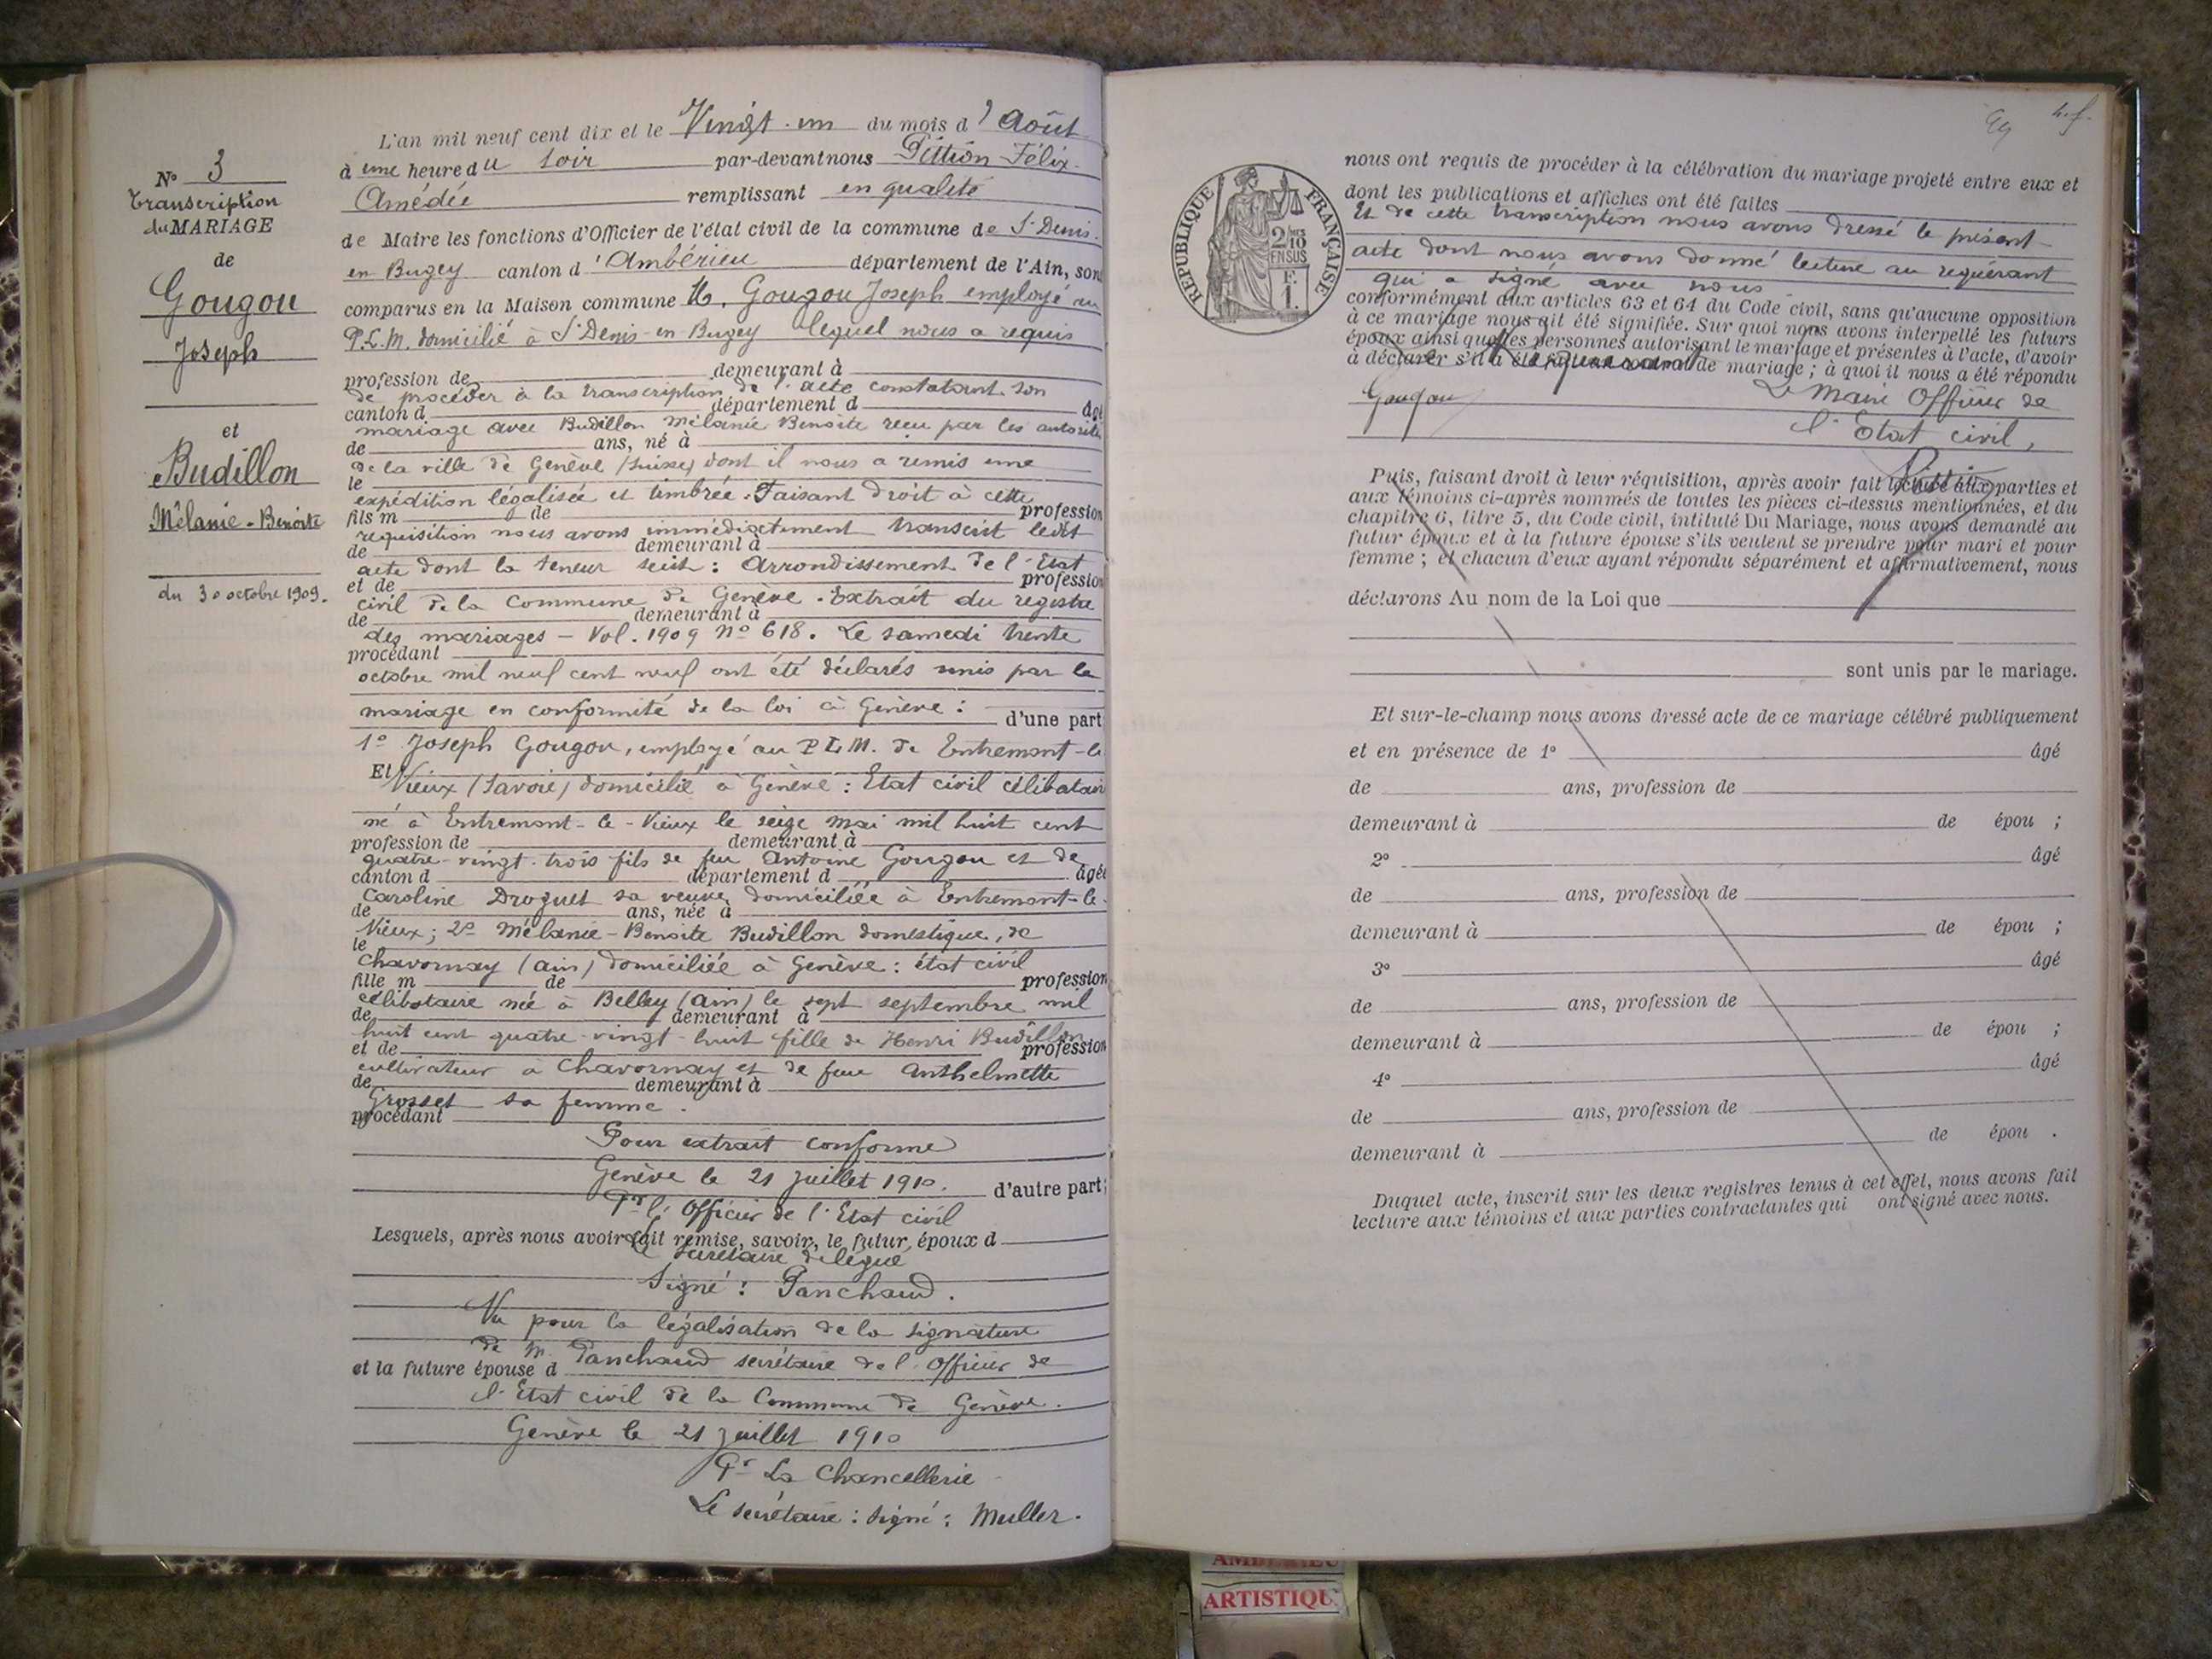 N° 3
Transcription
du MARIAGE
de
Gougou
Joseph
et
Budillon
Mélanie-Benoite
du 30 octobre 1909.
L'an mil neuf cent dix et le Vingt-un du mois d'Août
à une heure du soir par-devant nous Pittion Félix-
Amédée remplissant en qualité
de Maire les fonctions d'Officier de l'état civil de la commune de St Denis-
en Bugey canton d'Ambérieu département de l'Ain, son
comparus en la Maison commune M. Gougou Joseph employé au
P.L.M. domicilié à St Denis-en-Bugey lequel nous a requis
profession de demeurant à
de procéder à la transcription de l'acte constatant son
canton d département d âgé
mariage avec Budillon Mélanie Benoite reçu par les autorités
de ans, né à
de la ville de Genève (Suisse) dont il nous a remis une
le
expédition légalisée et timbrée. Faisant droit à cette
fils m de profession
requisition nous avons immédiatement transcrit ledit
de demeurant à
acte dont la teneur suit : Arrondissement de l'Etat
et de profession
civil de la Commune de Genève. Extrait du registre
de demeurant à
des mariages - Vol. 1909 N° 618. Le samedi trente
procédant
octobre mil neuf cent neuf ont été déclarés unis par le
mariage en conformité de la loi à Genève :
d'une part
1° Joseph Gougou, employé au P L M. de Entremont-le
Et
Vieux (Savoie) domicilié à Genève : Etat civil célibataire
né à Entremont-le-Vieux le seize mai mil huit cent
profession de demeurant à
quatre-vingt-trois fils de feu Antoine Gougou et de
canton d département d âgée
Caroline Droguet sa veuve, domiciliée à Entremont-le-
de ans, née à
Vieux ; 2° Mélanie-Benoite Budillon domestique, de
le
Chavornay (Ain) domiciliée à Genève : état civil
fille m de profession
célibataire née à Belley (Ain) le sept septembre mil
de demeurant à
huit cent quatre-vingt-huit fille de Henri Budillon
et de profession
cultivateur à Chavornay et de feue Anthelmette
de demeurant à
Grosset sa femme.
procédant
Pour extrait conforme
Genève le 21 juillet 1910.
d'autre part ;
Pr l'Officier de l'Etat civil
Lesquels, après nous avoir fait remise, savoir, le futur époux d
Le secrétaire délégué
Signé : Panchaud.
Vu pour la légalisation de la signature
de M. Panchaud secrétaire de l'Officier de
et la future épouse d
l'Etat civil de la Commune de Genève.
Genève le 21 juillet 1910
Pr La Chancellerie
Le secrétaire : signé : Muller.
RÉPUBLIQUE FRANÇAISE
2/10 EN SUS
F.
1.
nous ont requis de procéder à la célébration du mariage projeté entre eux et
dont les publications et affiches ont été faites
Et de cette transcription nous avons dressé le présent
acte dont nous avons donné lecture au requérant
qui a signé avec nous
conformément aux articles 63 et 64 du Code civil, sans qu'aucune opposition
à ce mariage nous ait été signifiée. Sur quoi nous avons interpellé les futurs
époux ainsi que les personnes autorisant le mariage et présentes à l'acte, d'avoir
à déclarer s'il a été fait un contrat de mariage ; à quoi il nous a été répondu
Le requérant
Gougou
Le Maire Officier de
l'Etat civil,
Pittion
Puis, faisant droit à leur réquisition, après avoir fait lecture aux parties et
aux témoins ci-après nommés de toutes les pièces ci-dessus mentionnées, et du
chapitre 6, titre 5, du Code civil, intitulé Du Mariage, nous avons demandé au
futur époux et à la future épouse s'ils veulent se prendre pour mari et pour
femme ; et chacun d'eux ayant répondu séparément et affirmativement, nous
déclarons Au nom de la Loi que
sont unis par le mariage.
Et sur-le-champ nous avons dressé acte de ce mariage célébré publiquement
et en présence de 1° âgé
de ans, profession de
demeurant à de épou ;
2° âgé
de ans, profession de
demeurant à de épou ;
3° âgé
de ans, profession de
demeurant à de épou ;
4° âgé
de ans, profession de
demeurant à de épou .
Duquel acte, inscrit sur les deux registres tenus à cet effet, nous avons fait
lecture aux témoins et aux parties contractantes qui ont signé avec nous.
ARTISTIQU